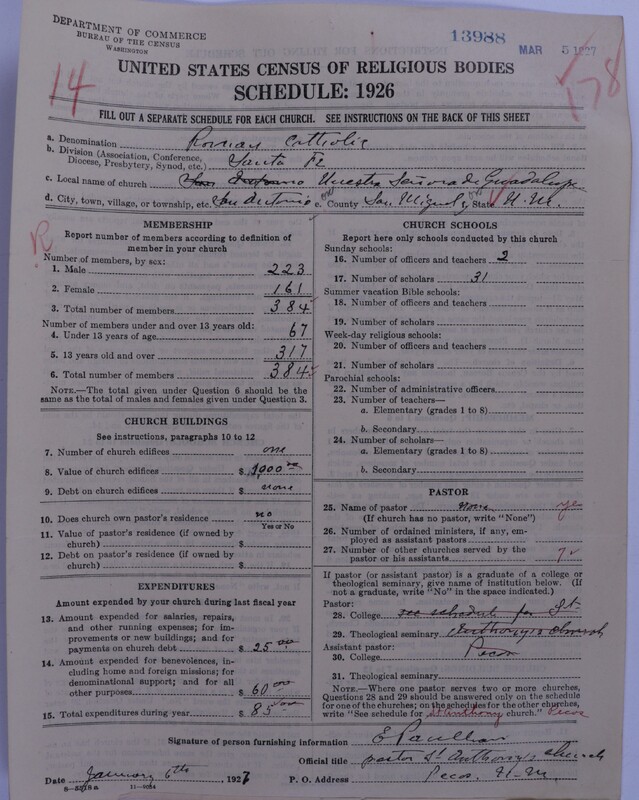 DEPARTMENT OF COMMERCE
BUREAU OF THE CENSUS
WASHINGTON
13988
MAR 5 1927
14
178
UNITED STATES CENSUS OF RELIGIOUS BODIES
SCHEDULE: 1926
FILL OUT A SEPARATE SCHEDULE FOR EACH CHURCH. SEE INSTRUCTIONS ON THE BACK OF THIS SHEET
a. Denomination Roman Catholic
b. Division (Association, Conference, Diocese, Presbytery, Synod, etc.) Santa Fe
c. Local name of church Nuestra Señora de Guadalupe
d. City, town, village, or township, etc. San Antonio e. County San Miguel f. State N. M.
R
MEMBERSHIP
Report number of members according to definition of member in your church
Number of members, by sex:
1. Male 223
2. Female 161
3. Total number of members 384
Number of members under and over 13 years old:
4. Under 13 years of age 67
5. 13 years old and over 317
6. Total number of members 384
NOTE.—The total given under Question 6 should be the same as the total of males and females given under Question 3.
CHURCH BUILDINGS
See instructions, paragraphs 10 to 12
7. Number of church edifices one
8. Value of church edifices $ 1,000 00
9. Debt on church edifices $ none
10. Does church own pastor's residence no
Yes or No
11. Value of pastor's residence (if owned by church) $
12. Debt on pastor's residence (if owned by church) $
EXPENDITURES
Amount expended by your church during last fiscal year
13. Amount expended for salaries, repairs, and other running expenses; for improvements or new buildings; and for payments on church debt $ 25 00
14. Amount expended for benevolences, including home and foreign missions; for denominational support; and for all other purposes $ 60 00
15. Total expenditures during year $ 85 00
CHURCH SCHOOLS
Report here only schools conducted by this church
Sunday schools:
16. Number of officers and teachers 2
17. Number of scholars 31
Summer vacation Bible schools:
18. Number of officers and teachers
19. Number of scholars
Week-day religious schools:
20. Number of officers and teachers
21. Number of scholars
Parochial schools:
22. Number of administrative officers
23. Number of teachers—
a. Elementary (grades 1 to 8)
b. Secondary
24. Number of scholars—
a. Elementary (grades 1 to 8)
b. Secondary
PASTOR
25. Name of pastor none yes
(If church has no pastor, write "None")
26. Number of ordained ministers, if any, employed as assistant pastors
27. Number of other churches served by the pastor or his assistants
If pastor (or assistant pastor) is a graduate of a college or theological seminary, give name of institution below. (If not a graduate, write "No" in the space indicated.)
Pastor:
28. College see schedule for St
29. Theological seminary Anthony's church
Assistant pastor:
30. College Pecos
31. Theological seminary
NOTE.—Where one pastor serves two or more churches, Questions 28 and 29 should be answered only on the schedule for one of the churches; on the schedules for the other churches, write "See schedule for St Anthony church." Pecos
Signature of person furnishing information E Paulhan
Official title pastor St Anthony's church
Date January 6th 1927 P. O. Address Pecos, N-M.
8-5918 a 11-9024